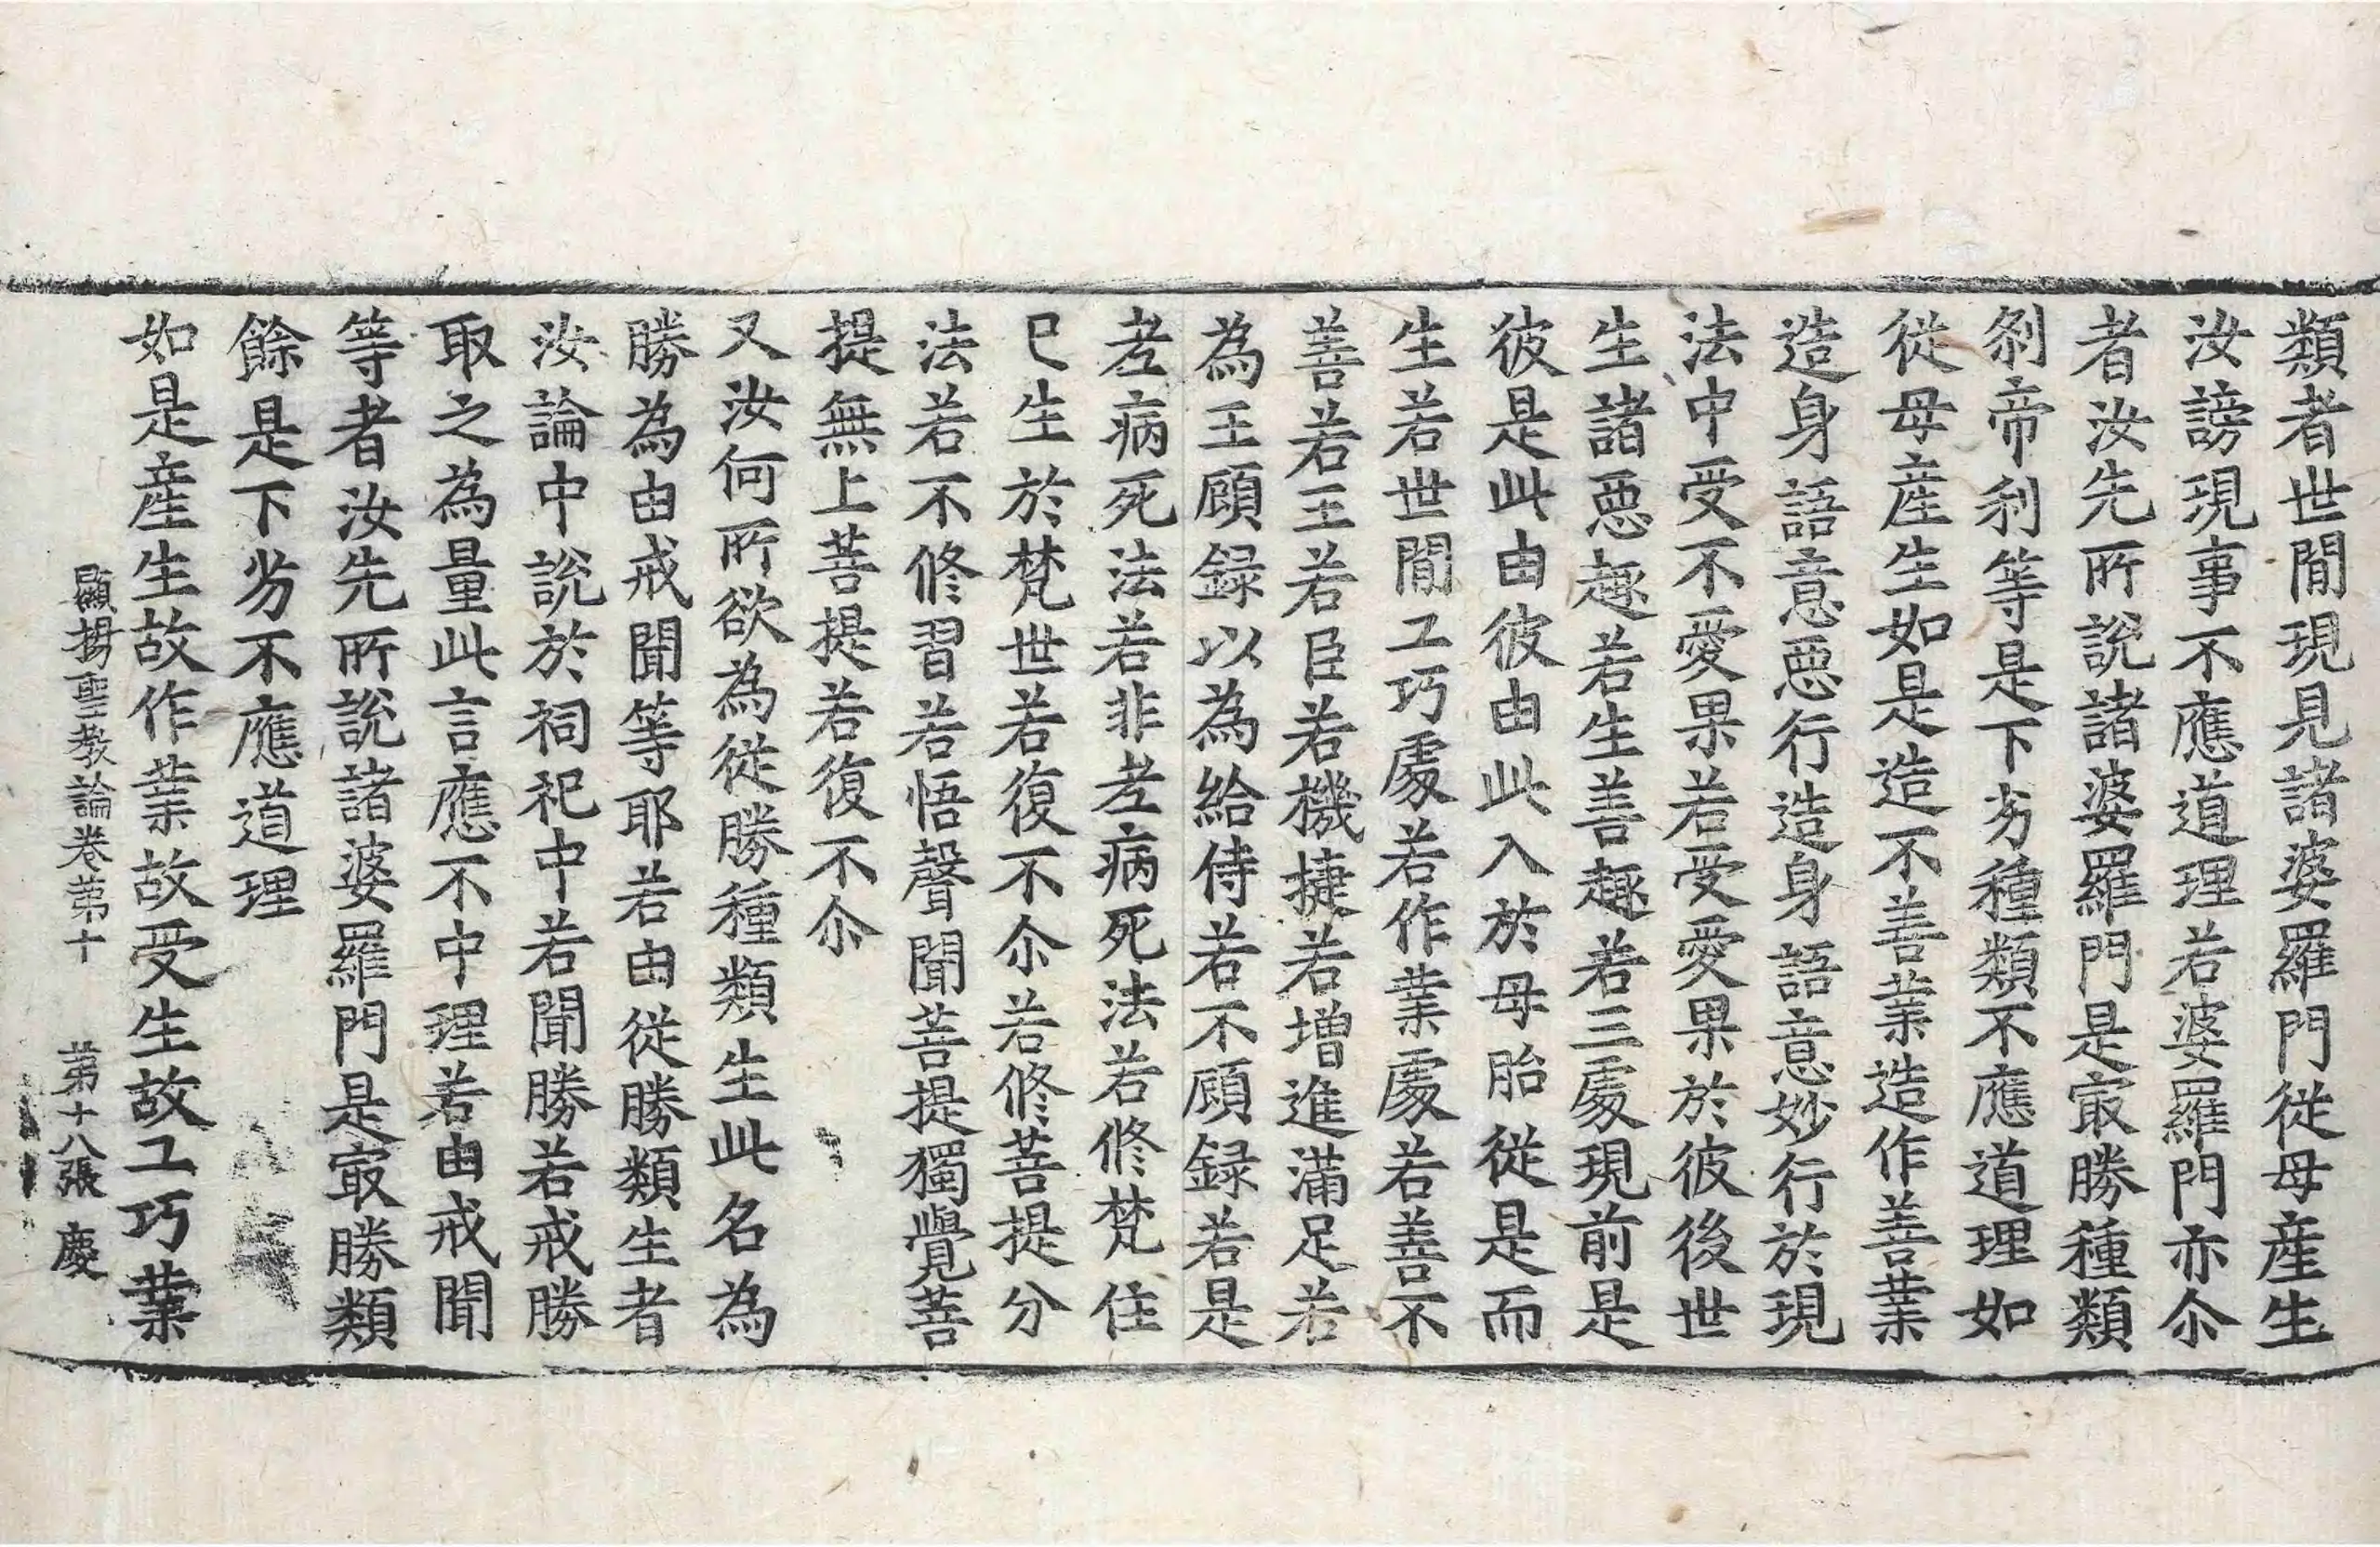 類者世間現見諸婆羅門從母產生
汝謗現事不應道理若婆羅門亦尒
者汝先所說諸婆羅門是㝡勝種類
剎帝利等是下劣種類不應道理如
從母產生如是造不善業造作善業
造身語意惡行造身語意妙行於現
法中受不愛果若受愛果於彼後世
生諸惡趣若生善趣若三處現前是
彼是此由彼由此入於母胎從是而
生若世間工巧處若作業處若善不
善若王若臣若機捷若增進滿足若
為王顧録以為給侍若不顧録若是
老病死法若非老病死法若修梵住
已生於梵世若復不尒若修菩提分
法若不修習若悟聲聞菩提獨覺菩
提無上菩提若復不尒
又汝何所欲為從勝種類生此名為
勝為由戒聞等耶若由從勝類生者
汝論中說於祠祀中若聞勝若戒勝
取之為量此言應不中理若由戒聞
等者汝先所說諸婆羅門是㝡勝類
餘是下劣不應道理
如是產生故作業故受生故工巧業
顯揚聖教論卷第十 第十八張 慶